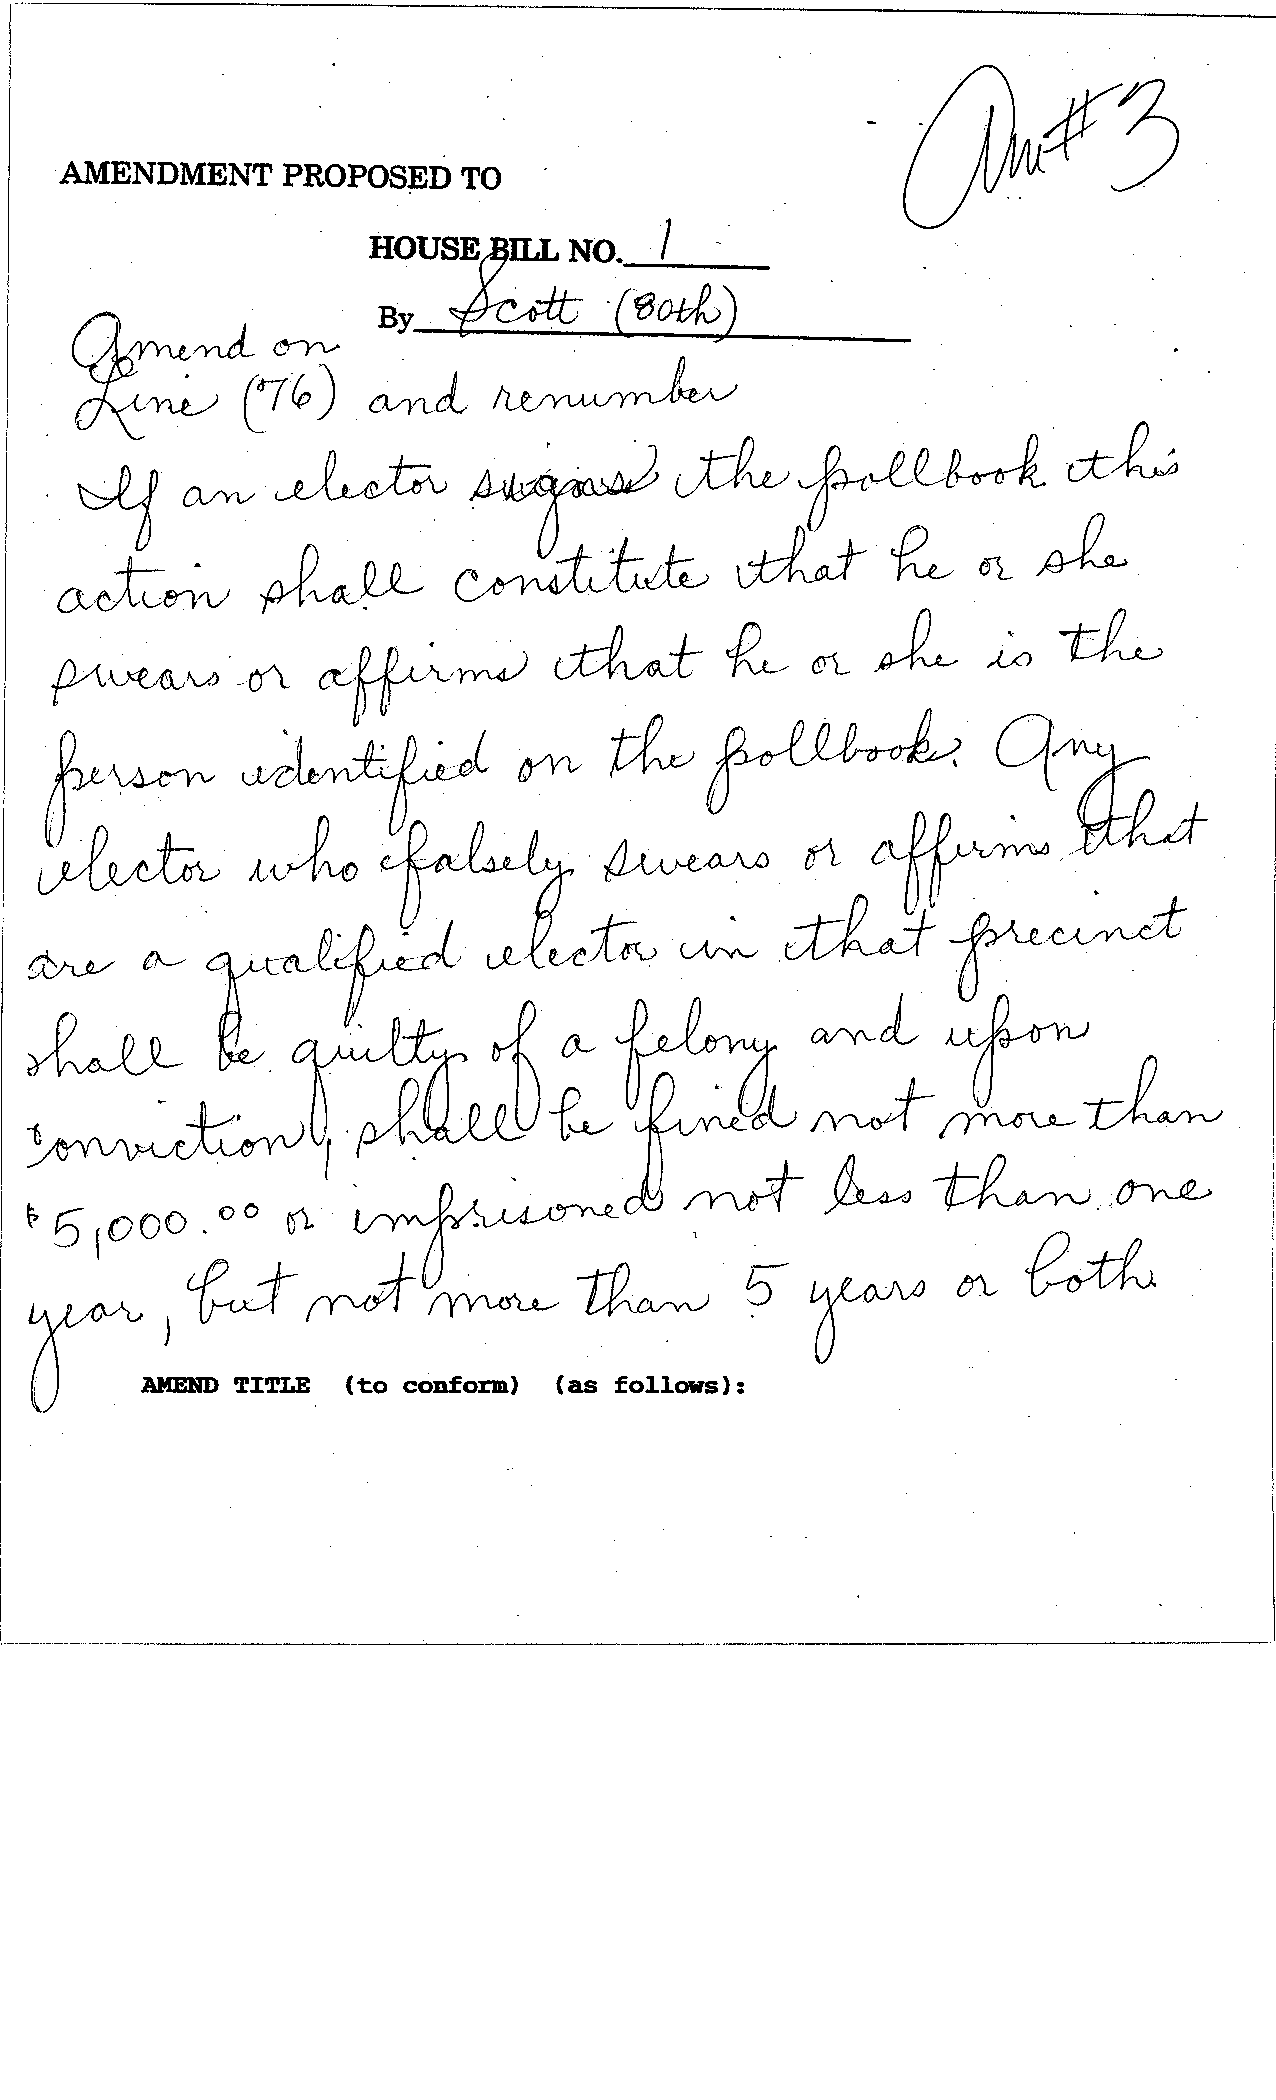 Am #3
AMENDMENT PROPOSED TO
HOUSE BILL NO. 1
By Scott (80th)
Amend on
Line (76) and renumber
If an elector signs the pollbook this
action shall constitute that he or she
swears or affirms that he or she is the
person identified on the pollbook. Any
elector who falsely swears or affirms that
are a qualified elector in that precinct
shall be guilty of a felony and upon
conviction, shall be fined not more than
$5,000.00 or imprisoned not less than one
year, but not more than 5 years or both
AMEND TITLE (to conform) (as follows):